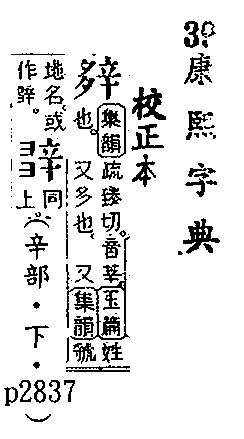 3
康熙字典
校正本
集韻疏臻切。音莘。玉篇姓
也。又多也。又集韻號
地名。或
作
同
上
(辛部・下・
p2837
)